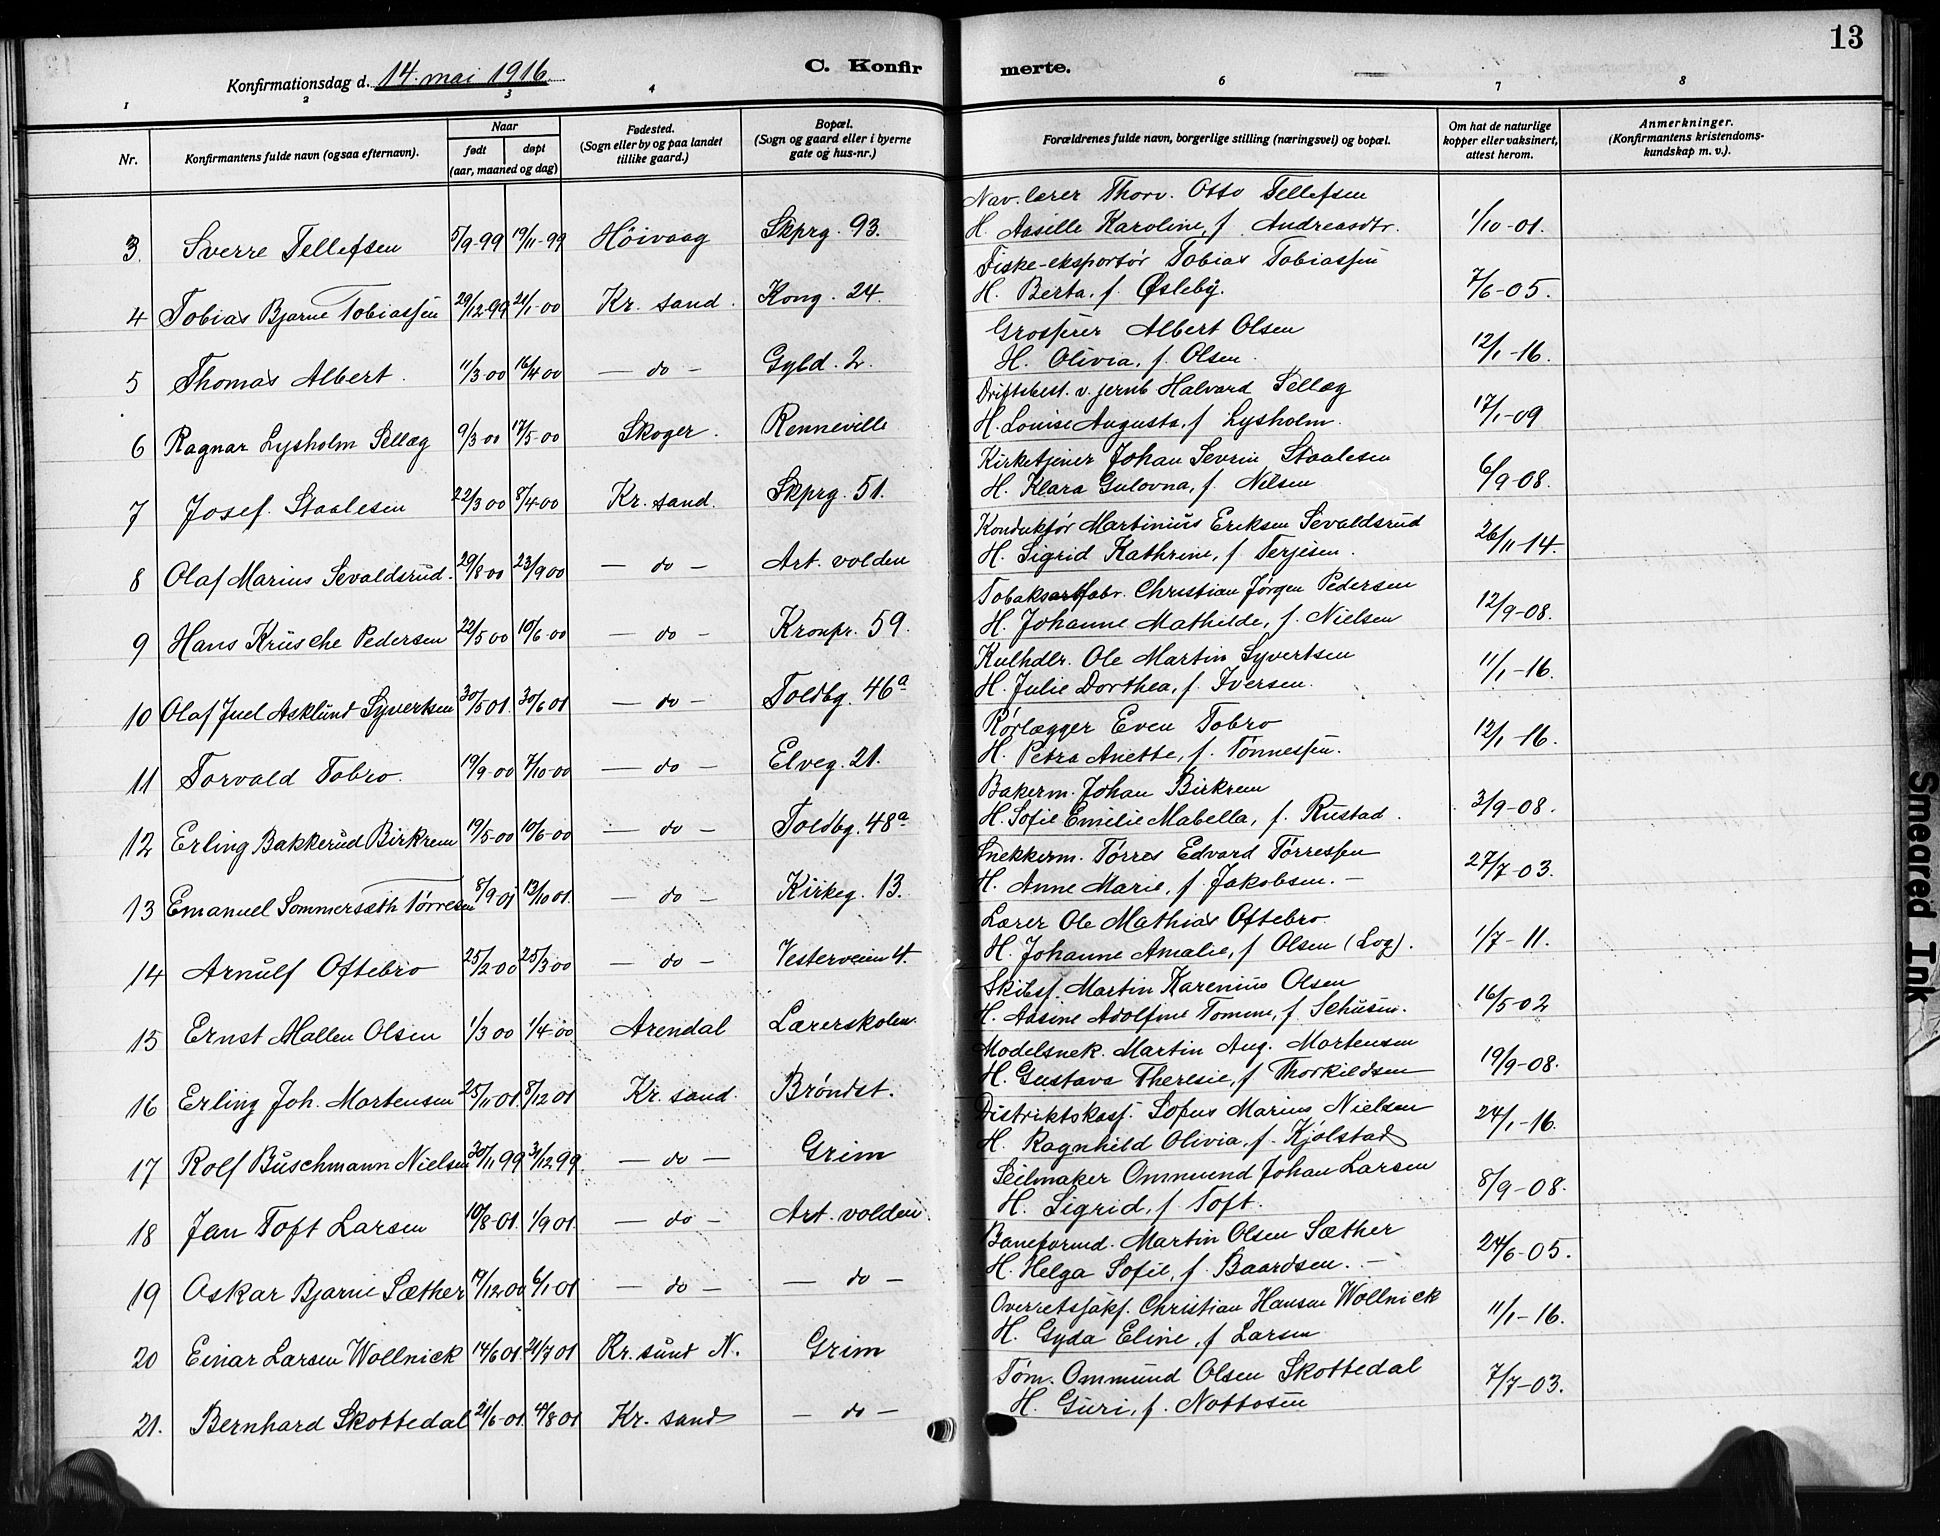 13
Konfirmationsdag d. 14. mai 1916
C. Konfirmerte.
1 2 3 4 6 7 8
Nr. Konfirmantens fulde navn (ogsaa efternavn). Naar født døpt (aar, maaned og dag) Fødested. (Sogn eller by og paa landet tillike gaard.) Bopæl. (Sogn og gaard eller i byerne gate og hus-nr.) Forældrenes fulde navn, borgerlige stilling (næringsvei) og bopæl. Om hat de naturlige kopper eller vaksinert, attest herom. Anmerkninger. (Konfirmantens kristendoms-kundskap m. v.).
Nav. lærer Thorv. Otto Tellefsen
3 Sverre Tellefsen 5/9-99 19/11-99 Höivaag Skprg. 93. H. Aasille Karoline, f. Andreasdtr. 1/10-01.
Fiske-eksportør Tobias Tobiassen
4 Tobias Bjarne Tobiassen 29/12-99 21/1-00 Kr. sand. Kong. 24. H. Berta, f. Øsleby. 7/6-05.
Grosserer Albert Olsen
5 Thomas Albert. 11/3 00 16/4 00 — do — Gyld. 2. H. Olivia, f. Olsen. 12/1-16.
Driftsbest. v. jernb Halvard Sellæg
6 Ragnar Lysholm Sellæg 9/3 00 17/5-00 Skoger. Renneville H. Louise Augusta, f. Lysholm. 17/1-09
Kirketjener Johan Sevrin Staalesen
7 Josef. Staalesen 22/3 00 8/4-00 Kr. sand. Skprg. 51. H. Klara Gulovna, f. Nilsen 6/9-08.
Konduktør Martinius Eriksen Sevaldsrud
8 Olaf Marius Sevaldsrud. 29/8-00 23/9 00 — do — Art. volden H. Sigrid Kathrine, f. Terjesen. 26/11-14.
Christian Jørgen Pedersen
9 Hans Krusche Pedersen 22/5 00 10/6-00 — do — Kronpr. 59. H. Johanne Mathilde, f. Nielsen 12/9-08.
Kulhdlr. Ole Martin Syvertsen
10 Olaf Juel Asklund Syvertsen 30/5 01. 30/6 01 — do — Toldbg. 46a H. Julie Dorthea, f. Iversen. 11/1-16.
Rørlægger Even Tobro
11 Torvald Tobro. 19/9-00 7/10-00 — do — Elveg. 21. H. Petra Anette, f. Tønnessen. 12/1-16.
Bakerm. Johan Birkrem
12 Erling Bakkerud Birkrem 19/5-00 10/6-00 — do — Toldbg. 48a H. Sofie Emilie Mabella, f. Rustad. 3/9-08.
Snekkerm. Tørres Edvard Tørressen
13 Emanuel Sommersæth Tørresen 8/9-01 13/10 01. — do — Kirkeg. 13. H. Anne Marie, f. Jakobsen. — 27/7-03.
Lærer Ole Mathias Oftebro
14 Arnulf Oftebro 25/2-00 25/3 00 — do — Vesterveien 4. H. Johanne Amalie, f. Olsen (Log). 1/7-11.
Skibsf. Martin Karenius Olsen
15 Ernst Mallen Olsen 1/3 00 1/4-00 Arendal Lærerskolen. H. Aasine Adolfine Tomine, f. 16/5-02
Modelsnek. Martin Aug. Mortensen
16 Erling Joh. Mortensen 25/11-01. 8/12 01 Kr. sand. Brøndst. H. Gustava Theresie, f. Thorkildsen 19/9-08.
Distriktskass. Sofus Marius Nielsen
17 Rolf Buschmann Nielsen 30/11 99 31/12 99. — do — Grim H. Ragnhild Olivia, f. Kjølstad 24/1-16.
Seilmaker Ommund Johan Larsen
18 Jan Toft Larsen 10/8-01. 1/9 01. — do — Art. volden. H. Sigrid, f. Toft. 8/9-08.
Baneformd. Martin Olsen Sæther
19 Oskar Bjarne Sæther 19/12 00 6/1-01 — do — — do — H. Helga Sofie, f. Baardsen. — 24/6-05.
Overretssakf. Christian Hansen Wollnick
20 Einar Larsen Wollnick 14/6 01. 21/7 01 Kr. sund N. Grim H. Gyda Eline, f. Larsen 11/1-16.
Tøm. Ommund Olsen Skottedal
21. Bernhard Skottedal 21/6-01. 4/8 01 Kr. sand — do — H. Guri, f. Nottosen 7/7-03.
Smeared Ink